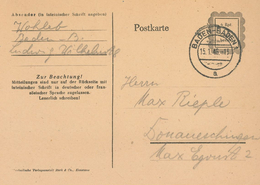 Absender (In lateinischer Schrift angeben)
Wohleb
Baden-B.
Ludwig Wilhelmstr.
Zur Beachtung!
Mitteilungen sind nur auf der Rückseite mit
lateinischer Schrift in deutscher oder fran-
zösischer Sprache zugelassen.
Leserlich schreiben!
Postkarte
BADEN-BADEN
Herrn
Max Rieple
Donaueschingen
Max Egonstr.